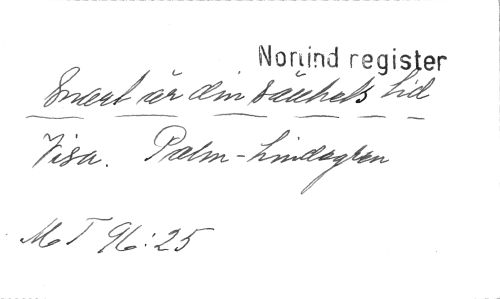 Norlind register
Snart är din sällhets tid
Visa. Palm-Lindegren
MT 96:25